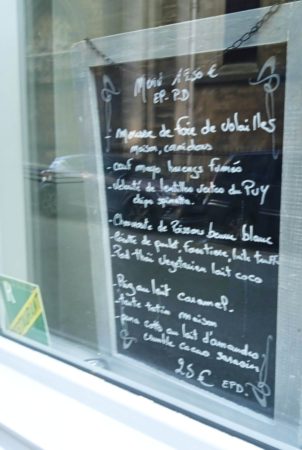 Menu 19.50 €
EP. PD
- Mousse de foie de volailles
maison, cornichons
- Oeuf mayo harengs fumés
- Velouté de lentilles vertes du PUY
chips
- Choucroute de Poissons beurre blanc
- de poulet,
- Pad thaï végétarien lait coco
- Riz au lait caramel.
- tarte tatin maison
- pana cotta au lait d'amandes
crumble cacao sarrasin
25 €
EPD.